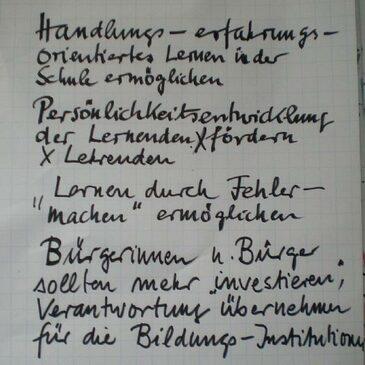 Handlungs- erfahrungs-
orientiertes Lernen in der
Schule ermöglichen
Persönlichkeitsentwicklung
der Lernenden X fördern
X Lehrenden
"Lernen durch Fehler-
machen" ermöglichen
Bürgerinnen u. Bürger
sollten mehr "investieren",
Verantwortung übernehmen
für die Bildungs-Institutionen